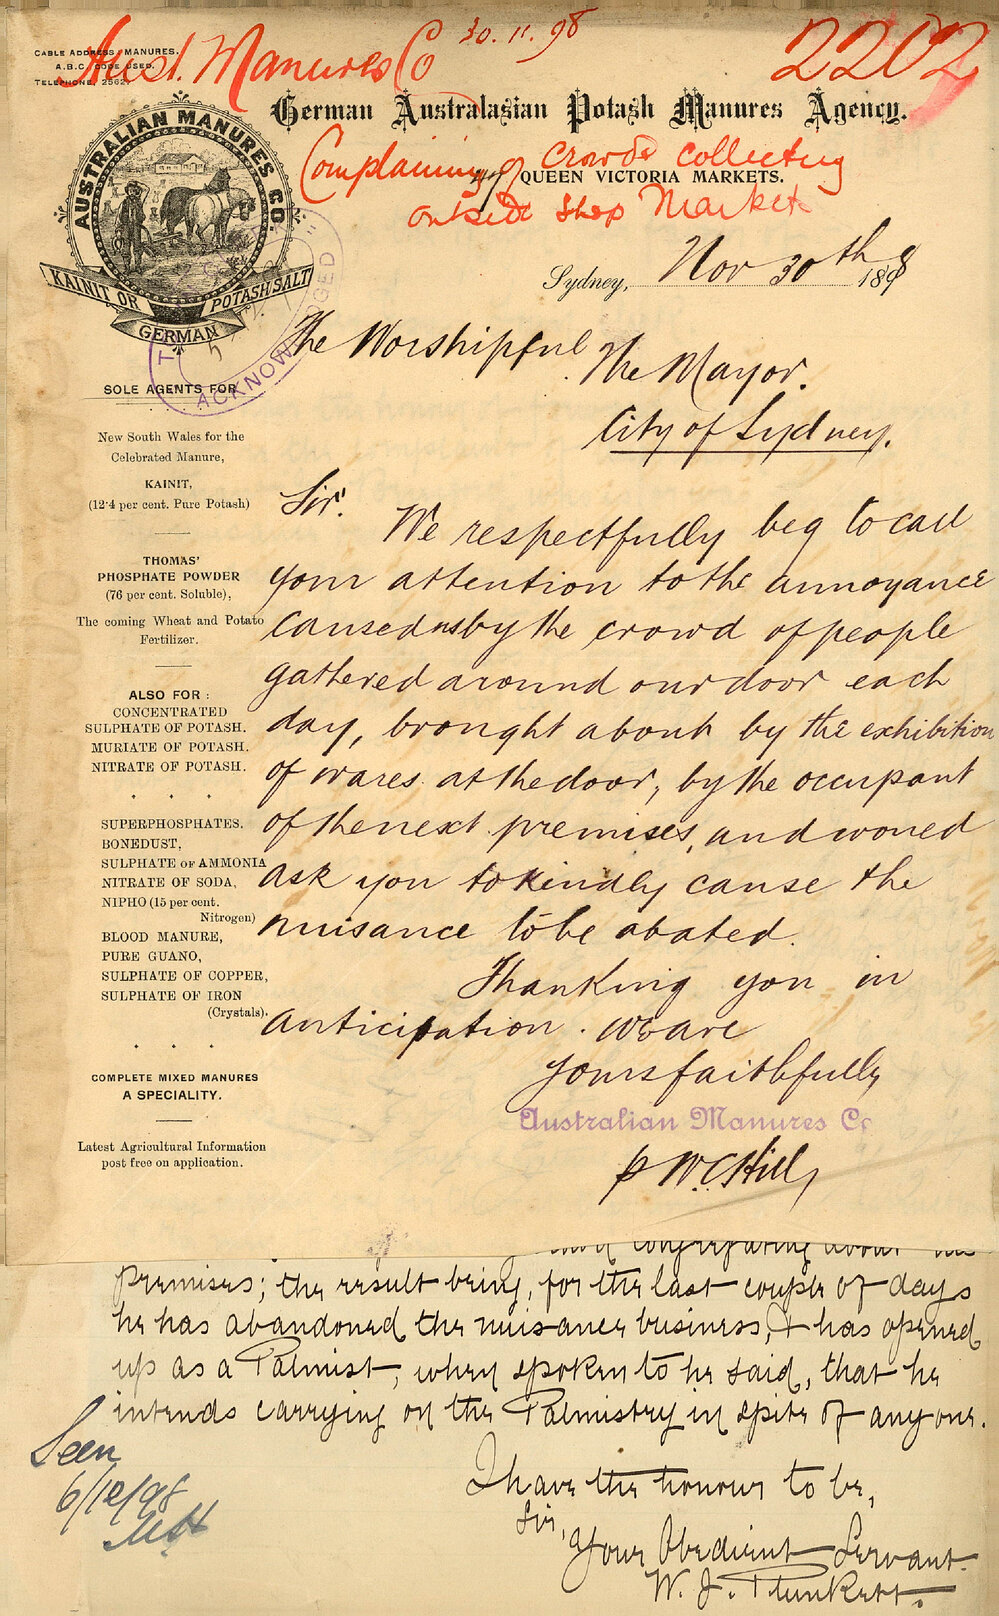 Aust. Manures Co 30.11.98
2202
CABLE ADDRESS, MANURES.
A.B.C. CODE USED.
TELEPHONE, 2562
German Australasian Potash Manures Agency.
Complaining of crowds collecting
QUEEN VICTORIA MARKETS.
outside shop Markets
AUSTRALIAN MANURES CO.
KAINIT OR POTASH SALT
GERMAN
ACKNOWLEDGED
Sydney, Nov 30th 1898
The Worshipful
The Mayor.
City of Sydney.
SOLE AGENTS FOR
New South Wales for the
Celebrated Manure,
KAINIT,
(12·4 per cent. Pure Potash)
THOMAS'
PHOSPHATE POWDER
(76 per cent. Soluble),
The coming Wheat and Potato
Fertilizer.
ALSO FOR :
CONCENTRATED
SULPHATE OF POTASH.
MURIATE OF POTASH.
NITRATE OF POTASH.
SUPERPHOSPHATES.
BONEDUST,
SULPHATE OF AMMONIA
NITRATE OF SODA,
NIPHO (15 per cent.
Nitrogen)
BLOOD MANURE,
PURE GUANO,
SULPHATE OF COPPER,
SULPHATE OF IRON
(Crystals).
COMPLETE MIXED MANURES
A SPECIALITY.
Latest Agricultural Information
post free on application.
Sir.
We respectfully beg to call
your attention to the annoyance
caused us by the crowd of people
gathered around our door each
day, brought about by the exhibition
of wares at the door, by the occupant
of the next premises, and would
ask you to kindly cause the
nuisance to be abated.
Thanking you in
anticipation. We are
yours faithfully
Australian Manures Co
p W.C. Hill
congregating about the
premises; the result being, for the last couple of days
he has abandoned the nuisance business, & has opened
up as a Palmist, when spoken to he said, that he
intends carrying on the Palmistry in spite of any one.
I have the honour to be,
Sir,
Your Obedient Servant.
W. J. Plunkett.
Seen
6/12/98